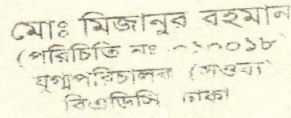 মোঃ মিজানুর রহমান
(পরিচিতি নং
যুগ্মপরিচালক
বিএডিসি ঢাকা